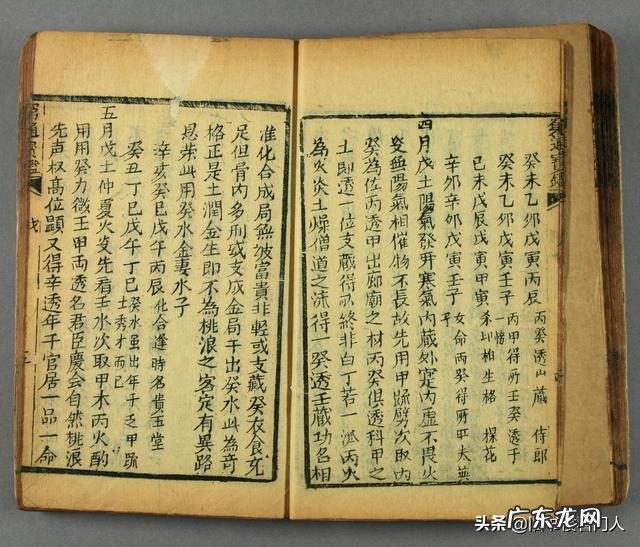 癸未乙卯戊寅丙辰 丙癸透山藏 侍郎
癸未乙卯戊寅壬子 丙甲得所壬癸透于 一榜
己未戊辰戊寅甲寅 杀印相生格 探花
辛卯辛卯戊寅壬子 女命丙癸得所旺夫益子
四月戊土陽氣發升寒氣内藏外寔内虚不畏火
炎無陽氣相催物不長故先用甲疏劈次取丙
癸為位丙透甲出廊廟之材丙癸俱透科甲之
士即透一位支藏得所終非白丁若一派丙火
為火炎土燥僧道之流得一癸透壬藏功名相
准化合成局無破富貴非輕或支藏癸衣食充
足但骨内多刑或支成金局干出癸水此為奇
格正是土潤金生即不為桃浪之客定有異路
恩柴此用癸水金妻水子
辛亥癸巳戊午丙辰 化合逢時名貴玉堂
癸丑丁巳戊午丁巳 癸水虽出年干乏甲疏土秀才而已
五月戊土仲夏火炎先看壬水次取甲木丙火酌
用用癸力微壬甲两透名君臣慶會自然桃浪
先声权髙位顕又得辛透年干官居一品一命
窮通寶鑑
头条
广东龙网